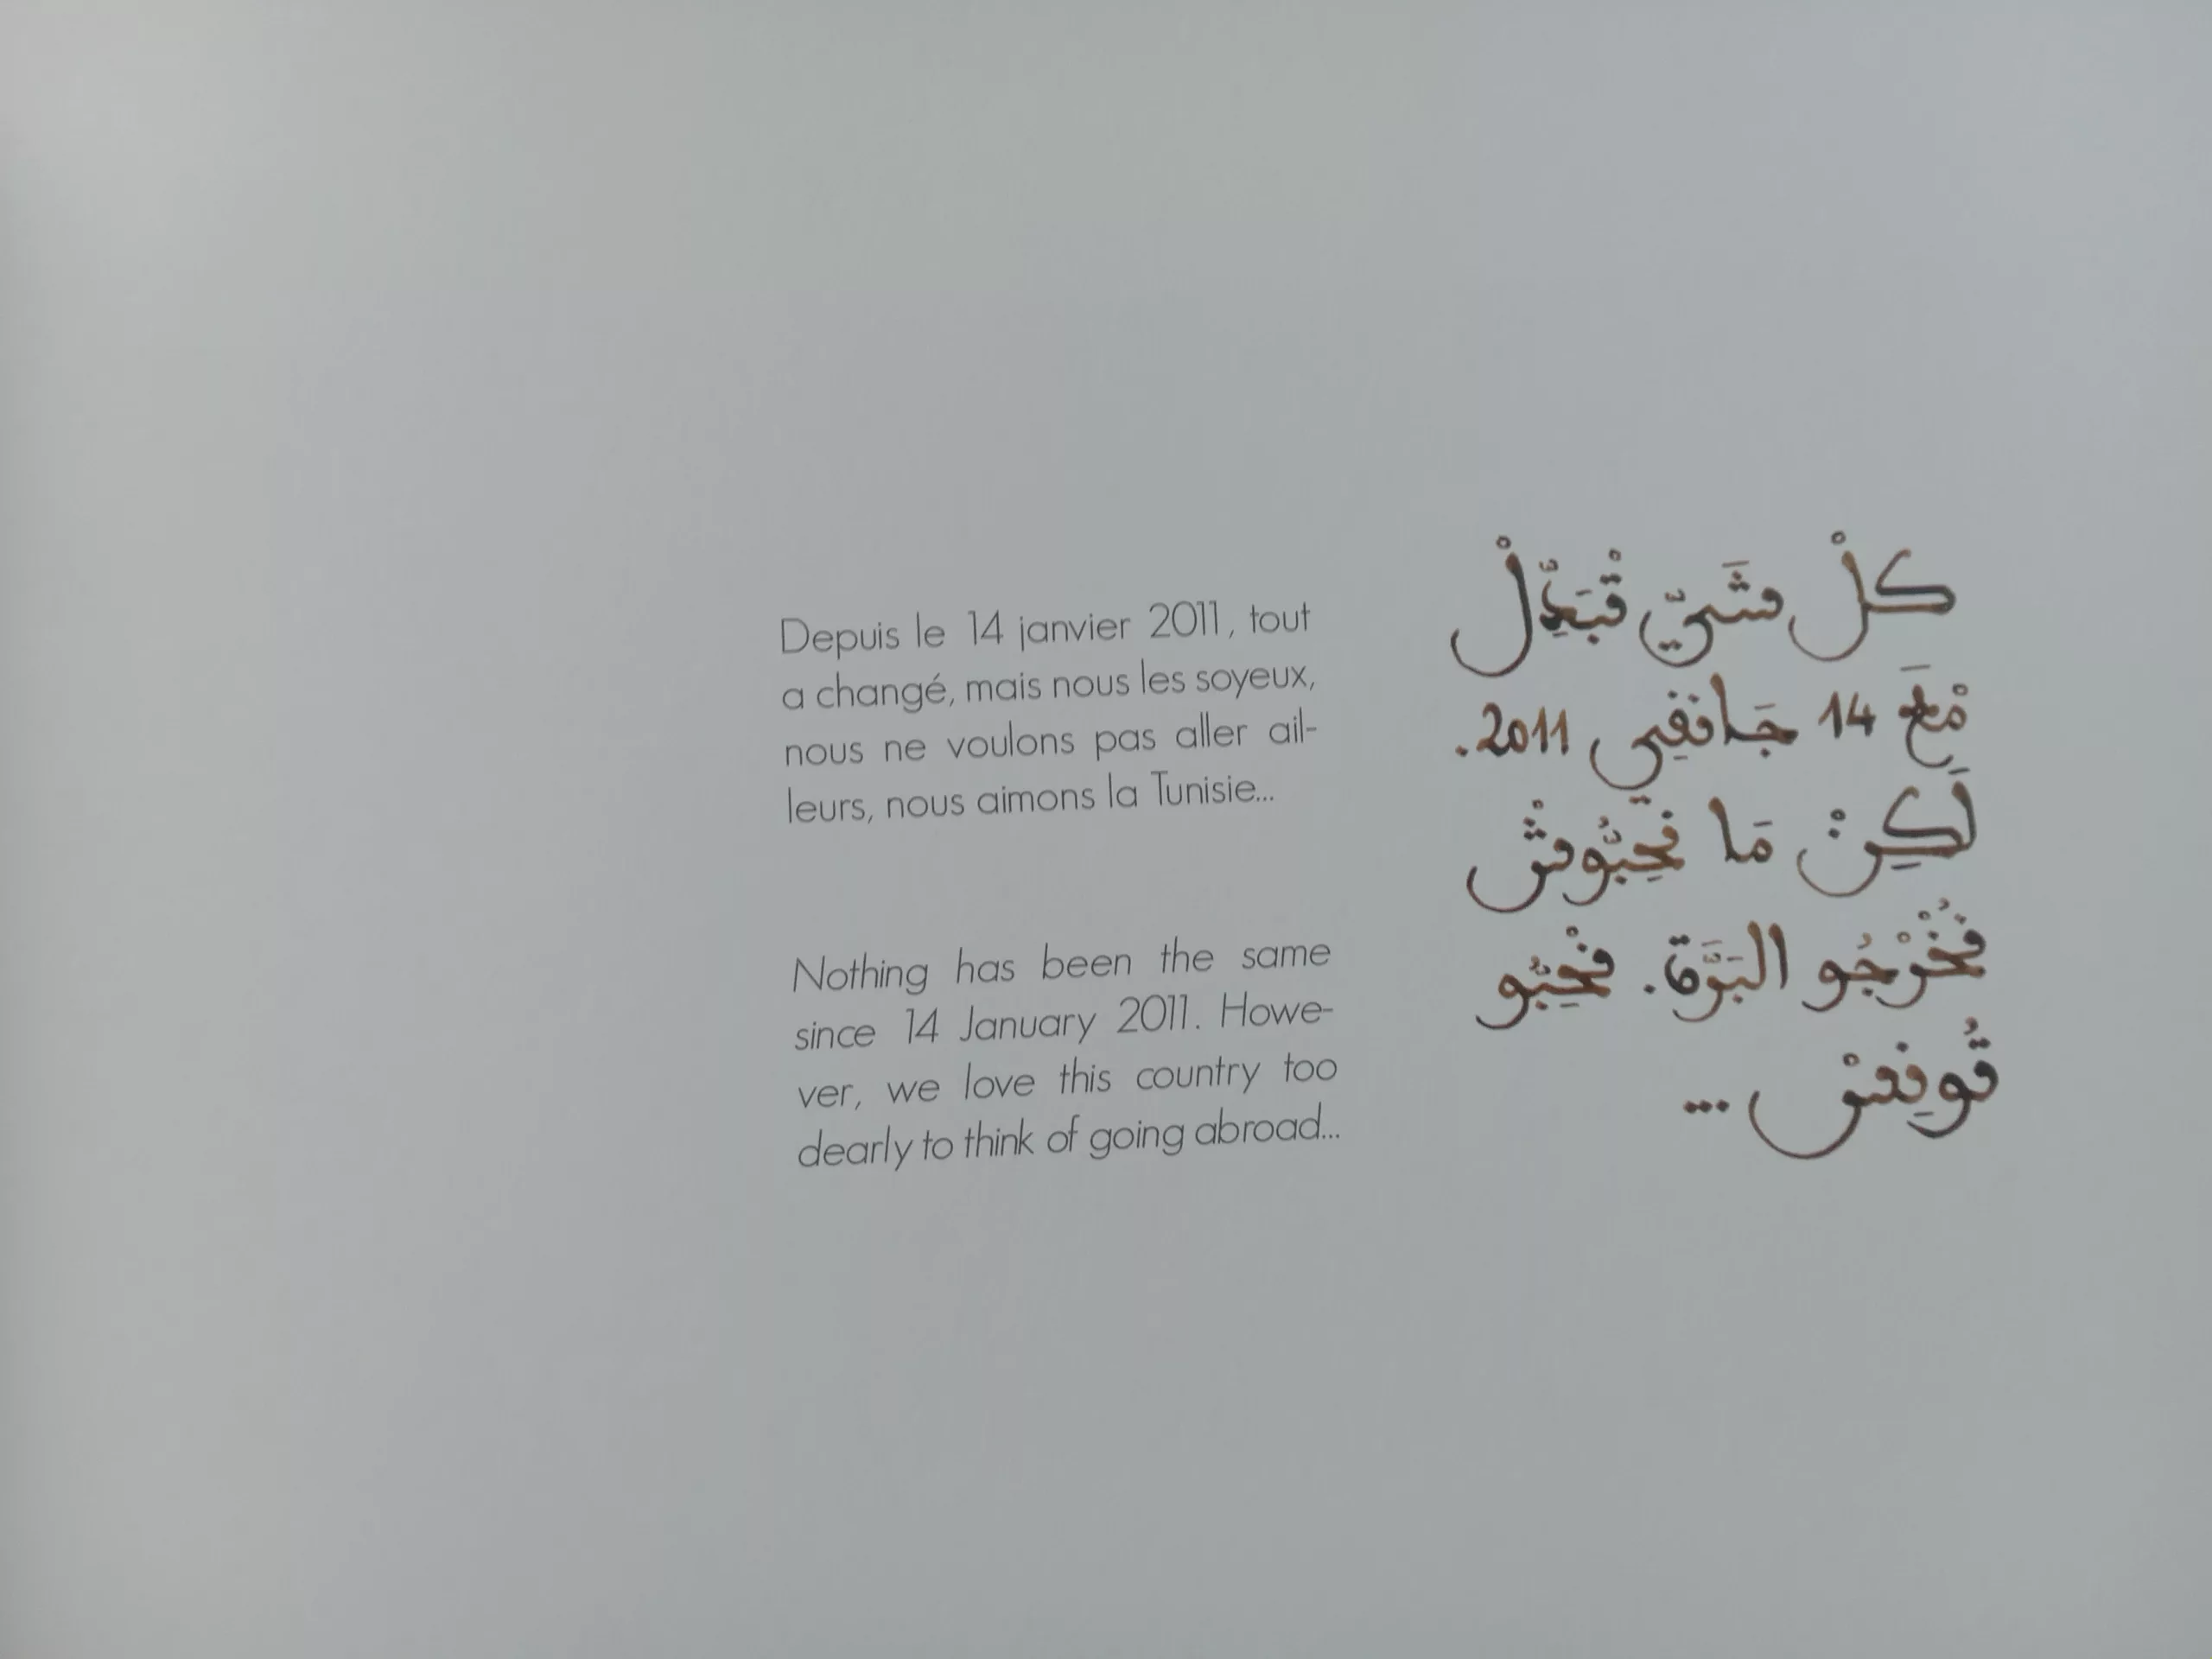 Depuis le 14 janvier 2011, tout
a changé, mais nous les soyeux,
nous ne voulons pas aller ail-
leurs, nous aimons la Tunisie...
Nothing has been the same
since 14 January 2011. Howe-
ver, we love this country too
dearly to think of going abroad...
كلْ شَيّ تْبَدِّلْ
مْعَ 14 جَانفِي 2011.
لَكِنْ مَا نْحِبُّوشْ
نُخْرْجُو البَرَّة. نْحِبُّو
تُونِسْ ...